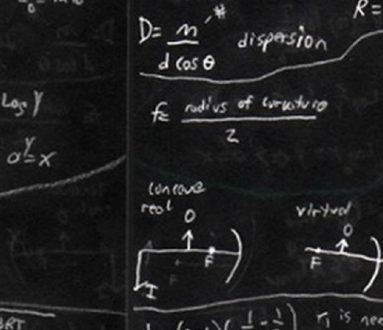 R =
D = m / d cos θ dispersion
Log y
a^y = x
f = radius of curvature / 2
concave
real O
virtual O
F
F
I
r₁ is neg